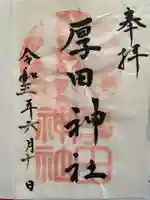 奉拝
厚田神社
令和三年六月十日